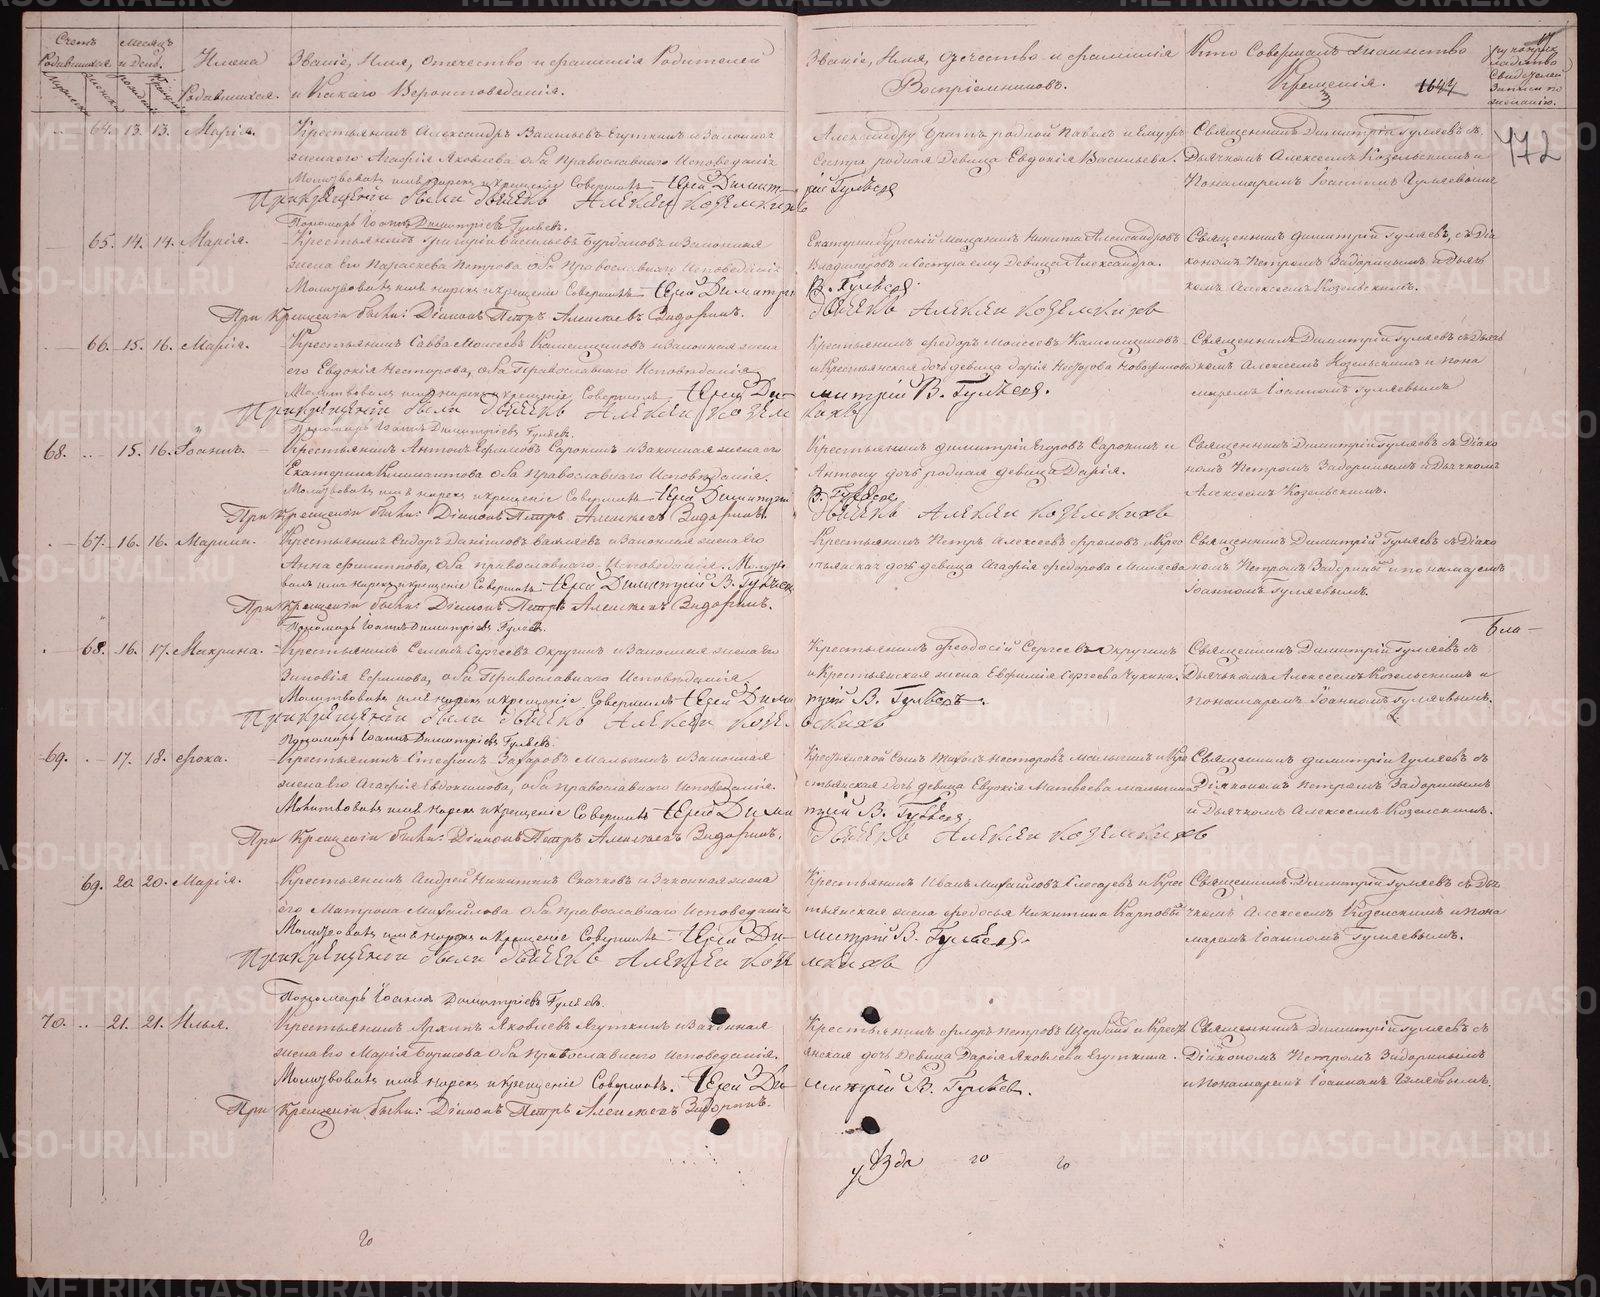 Счетъ Родившихся.
Мужеска
женска
Месяцъ и День.
рожденія
Крещенія
Имена
Родившихся.
Званіе, Имя, Отечество и фамилія Родителей
и Какаго Вероисповеданія.
Званіе, Имя, отчество и фамилія
Воспріемниковъ.
Кто Совершалъ Таинство
Крещенія.
1644
Свидетелей
Записи по
желанію.
472
64. 13. 13. Марія. Крестьянинъ Александръ Васильевъ Ягуткинъ и Законная
жена его Агафія Яковлева оба Православнаго Исповеданія
Молитвовалъ имя нарекъ и крещеніе Совершилъ Іерей Димит-
рій Гуляевъ
При крещеніи были дьячекъ Алексей Козельскихъ
Пономарь Іоаннъ Димитріевъ Гуляевъ.
Александру братъ родной Павелъ и ему же
Сестра родная Девица Евдокія Васильева.
Священникъ Димитрій Гуляевъ съ
Дьячкомъ Алексеемъ Козельскимъ и
Пономаремъ Іоанномъ Гуляевымъ
65. 14. 14. Марія. Крестьянинъ Григорій Васильевъ Бурдаковъ и Законная
жена Его Параскева Петрова оба Православнаго Исповеданія
Молитвовалъ имя нарекъ и крещеніе Совершилъ Іерей Димитрі
В. Гуляевъ.
При Крещеніи были: Діаконъ Петръ Алексеевъ Задоринъ.
дьячекъ Алексей Козельскихъ
Екатеринбургскій Мещанинъ Никита Александровъ
Владиміровъ и Сестра ему Девица Александра.
Священникъ Димитрій Гуляевъ, съ Діа
кономъ Петромъ Задоринымъ и Дьяч
комъ Алексеемъ Козельскимъ.
66. 15. 16. Марія. Крестьянинъ Савва Моисеевъ Каменщиковъ и Законная жена
его Евдокія Несторова, оба Православнаго Исповеданія
Молитвовалъ имя нарекъ и крещеніе Совершилъ Іерей Ди-
митрій В. Гуляевъ.
При крещеніи были дьячекъ Алексей Козель
скихъ
Пономарь Іоаннъ Димитріевъ Гуляевъ.
Крестьянинъ Федоръ Моисеевъ Каменщиковъ
и Крестьянская дочь девица Дарія Несторова
Священникъ Димитрій Гуляевъ съ Дьяч
комъ Алексеемъ Козельскимъ и Поно
маремъ Іоанномъ Гуляевымъ
68. 15. 16. Іоаннъ. Крестьянинъ Антонъ Ермиловъ Сарокинъ и Законная жена его
Екатерина Климантова оба Православнаго Исповеданія.
Молитвовалъ имя нарекъ и крещеніе Совершилъ Іерей Димитрій
В. Гуляевъ
При Крещеніи были: Діаконъ Петръ Алексеевъ Задоринъ.
дьячекъ Алексей Козельскихъ
Крестьянинъ Димитрій Егоровъ Сарокинъ и
Антону дочь родная девица Дарія.
Священникъ Димитрій Гуляевъ съ Діако
номъ Петромъ Задоринымъ и Дьячкомъ
Алексеемъ Козельскимъ.
67. 16. 16. Марина. Крестьянинъ Сидоръ Даніиловъ и Законная жена Его
Анна Филиппова, Оба Православнаго Исповеданія. Молитво
валъ имя нарекъ и крещеніе Совершилъ Іерей Димитрій В. Гуляевъ
При крещеніи были: Діаконъ Петръ Алексеевъ Задоринъ.
Пономарь Іоаннъ Димитріевъ Гуляевъ.
Крестьянинъ Петръ Алексеевъ Фроловъ и Крес
тьянская дочь девица Агафія Федорова
Священникъ Димитрій Гуляевъ съ Діако
номъ Петромъ Задоринымъ и пономаремъ
Іоанномъ Гуляевымъ.
Бла-
68. 16. 17. Макрина. Крестьянинъ Семенъ Сергеевъ Округинъ и Законная жена Его
Зиновія Ефимова, оба Православнаго Исповеданія.
Молитвовалъ имя нарекъ и крещеніе Совершилъ Іерей Дими
трій В. Гуляевъ.
При крещеніи были дьячекъ Алексей Козе
льскихъ
Пономарь Іоаннъ Димитріевъ Гуляевъ.
Крестьянинъ Феодосій Сергеевъ Округинъ
и Крестьянская жена Евфимія Сергеева Чукина.
Священникъ Димитрій Гуляевъ съ
Дьячкомъ Алексеемъ Козельскимъ и
пономаремъ Іоанномъ Гуляевымъ.
69. 17. 18. Фока. Крестьянинъ Стефанъ Захаровъ Малыгинъ и Законная
жена его Агафія Евдокимова, оба православнаго Исповеданія.
Молитвовалъ имя нарекъ и крещеніе Совершилъ Іерей Дими
трій В. Гуляевъ
При Крещеніи были: Діаконъ Петръ Алексеевъ Задоринъ.
дьячекъ Алексей Козельскихъ
Крестьянской Сынъ Тихонъ Несторовъ Малыгинъ и Кре
стьянская Дочь девица Евдокія Матвеева Малыгина
Священникъ Димитрій Гуляевъ съ
Діакономъ Петромъ Задоринымъ
и Дьячкомъ Алексеемъ Козельскимъ.
69. 20. 20. Марія. Крестьянинъ Андрей Никитинъ Скачковъ и Законная жена
его Матрона Михайлова оба Православнаго Исповеданія
Молитвовалъ имя нарекъ и крещеніе Совершилъ Іерей Ди-
митрій В. Гуляевъ.
При крещеніи были дьячекъ Алексей Козе
льскихъ
Пономарь Іоаннъ Димитріевъ Гуляевъ.
Крестьянинъ Иванъ Михайловъ Слесаревъ и Крес
тьянская жена Федосья Никитина Карпова
Священникъ Димитрій Гуляевъ съ Дья
чкомъ Алексеемъ Козельскимъ и Поно
маремъ Іоанномъ Гуляевымъ.
70. 21. 21. Илья. Крестьянинъ Архипъ Яковлевъ Ягуткинъ и Законная
жена его Марія Борисова Оба Православнаго Исповеданія.
Молитвовалъ имя нарекъ и крещеніе Совершилъ. Іерей Ди-
митрій В. Гуляевъ.
При Крещеніи были: Діаконъ Петръ Алексеевъ Задоринъ.
Крестьянинъ Флоръ Петровъ Щербаковъ и Крест
янская дочь Девица Дарія Яковлева Ягуткина.
Священникъ Димитрій Гуляевъ съ
Діакономъ Петромъ Задоринымъ
и Пономаремъ Іоанномъ Гуляевымъ.
уезда го го
го
METRIKI.GASO-URAL.RU